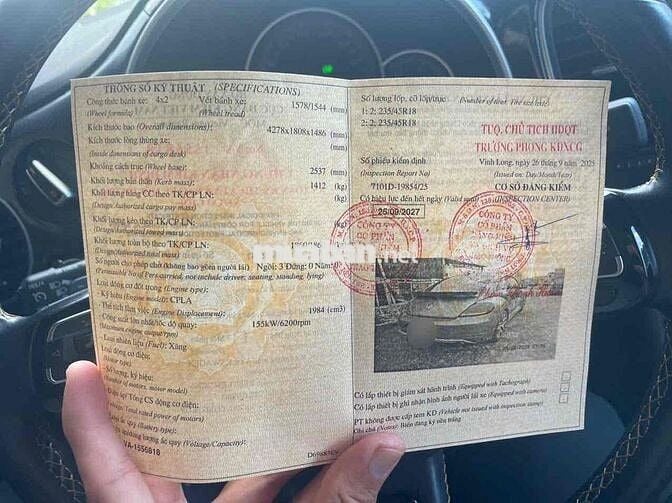 THÔNG SỐ KỸ THUẬT (SPECIFICATIONS)
Công thức bánh xe: 4x2 Vết bánh xe: 1578/1544 (mm)
(Wheel formula) (Wheel tread)
Kích thước bao (Overall dimensions): 4278x1808x1486 (mm)
Kích thước lòng thùng xe: (mm)
(Inside dimensions of cargo deck)
Khoảng cách trục (Wheel base) 2537 (mm)
Khối lượng bản thân (Kerb mass) 1412 (kg)
Khối lượng hàng CC theo TK/CP LN: (kg)
(Design/Authorized cargo pay mass)
Khối lượng kéo theo TK/CP LN:
(Design/Authorized towed mass)
Khối lượng toàn bộ theo TK/CP LN:
(Design/Authorized total mass)
Số người cho phép chở (không bao gồm người lái) Ngồi: 3 Đứng: 0 Nằm:
(Permissible No of Pers carried, not include driver: seating, standing, lying)
Loại động cơ đốt trong (Engine type):
Ký hiệu (Engine model): CPLA
Thể tích làm việc (Engine Displacement): 1984 (cm3)
Công suất lớn nhất/tốc độ quay: 155kW/6200rpm
(Maximum engine output/rpm)
Loại nhiên liệu (Fuel): Xăng
Loại động cơ điện:
(Motor type)
Số lượng, ký hiệu:
(Number of motors, motor model)
Tổng CS động cơ điện:
Total rated power of motors)
ắc quy (Battery type):
lượng ắc quy (Voltage/Capacity):
VA-1550818
Số lượng lốp, cỡ lốp/trục (Number of tires, Tire size/axle)
1: 2; 235/45R18
2: 2; 235/45R18
TUQ. CHỦ TỊCH HĐQT
TRƯỞNG PHÒNG KĐXCG
Số phiếu kiểm định Vĩnh Long, ngày 26 tháng 9 năm 2025
(Inspection Report No) (Issued on: Day/Month/Year)
7101D-19854/25 CƠ SỞ ĐĂNG KIỂM
Có hiệu lực đến hết ngày (Valid until) (INSPECTION CENTER)
25/09/2027
CÔNG TY
CỔ PHẦN
CÔNG TY
CỔ PHẦN
muaban.net
Có lắp thiết bị giám sát hành trình (Equipped with Tachograph)
Có lắp thiết bị ghi nhận hình ảnh người lái xe (Equipped with camera)
PT không được cấp tem KĐ (Vehicle not issued with inspection stamp)
Ghi chú (Notes): Biển đăng ký nền trắng